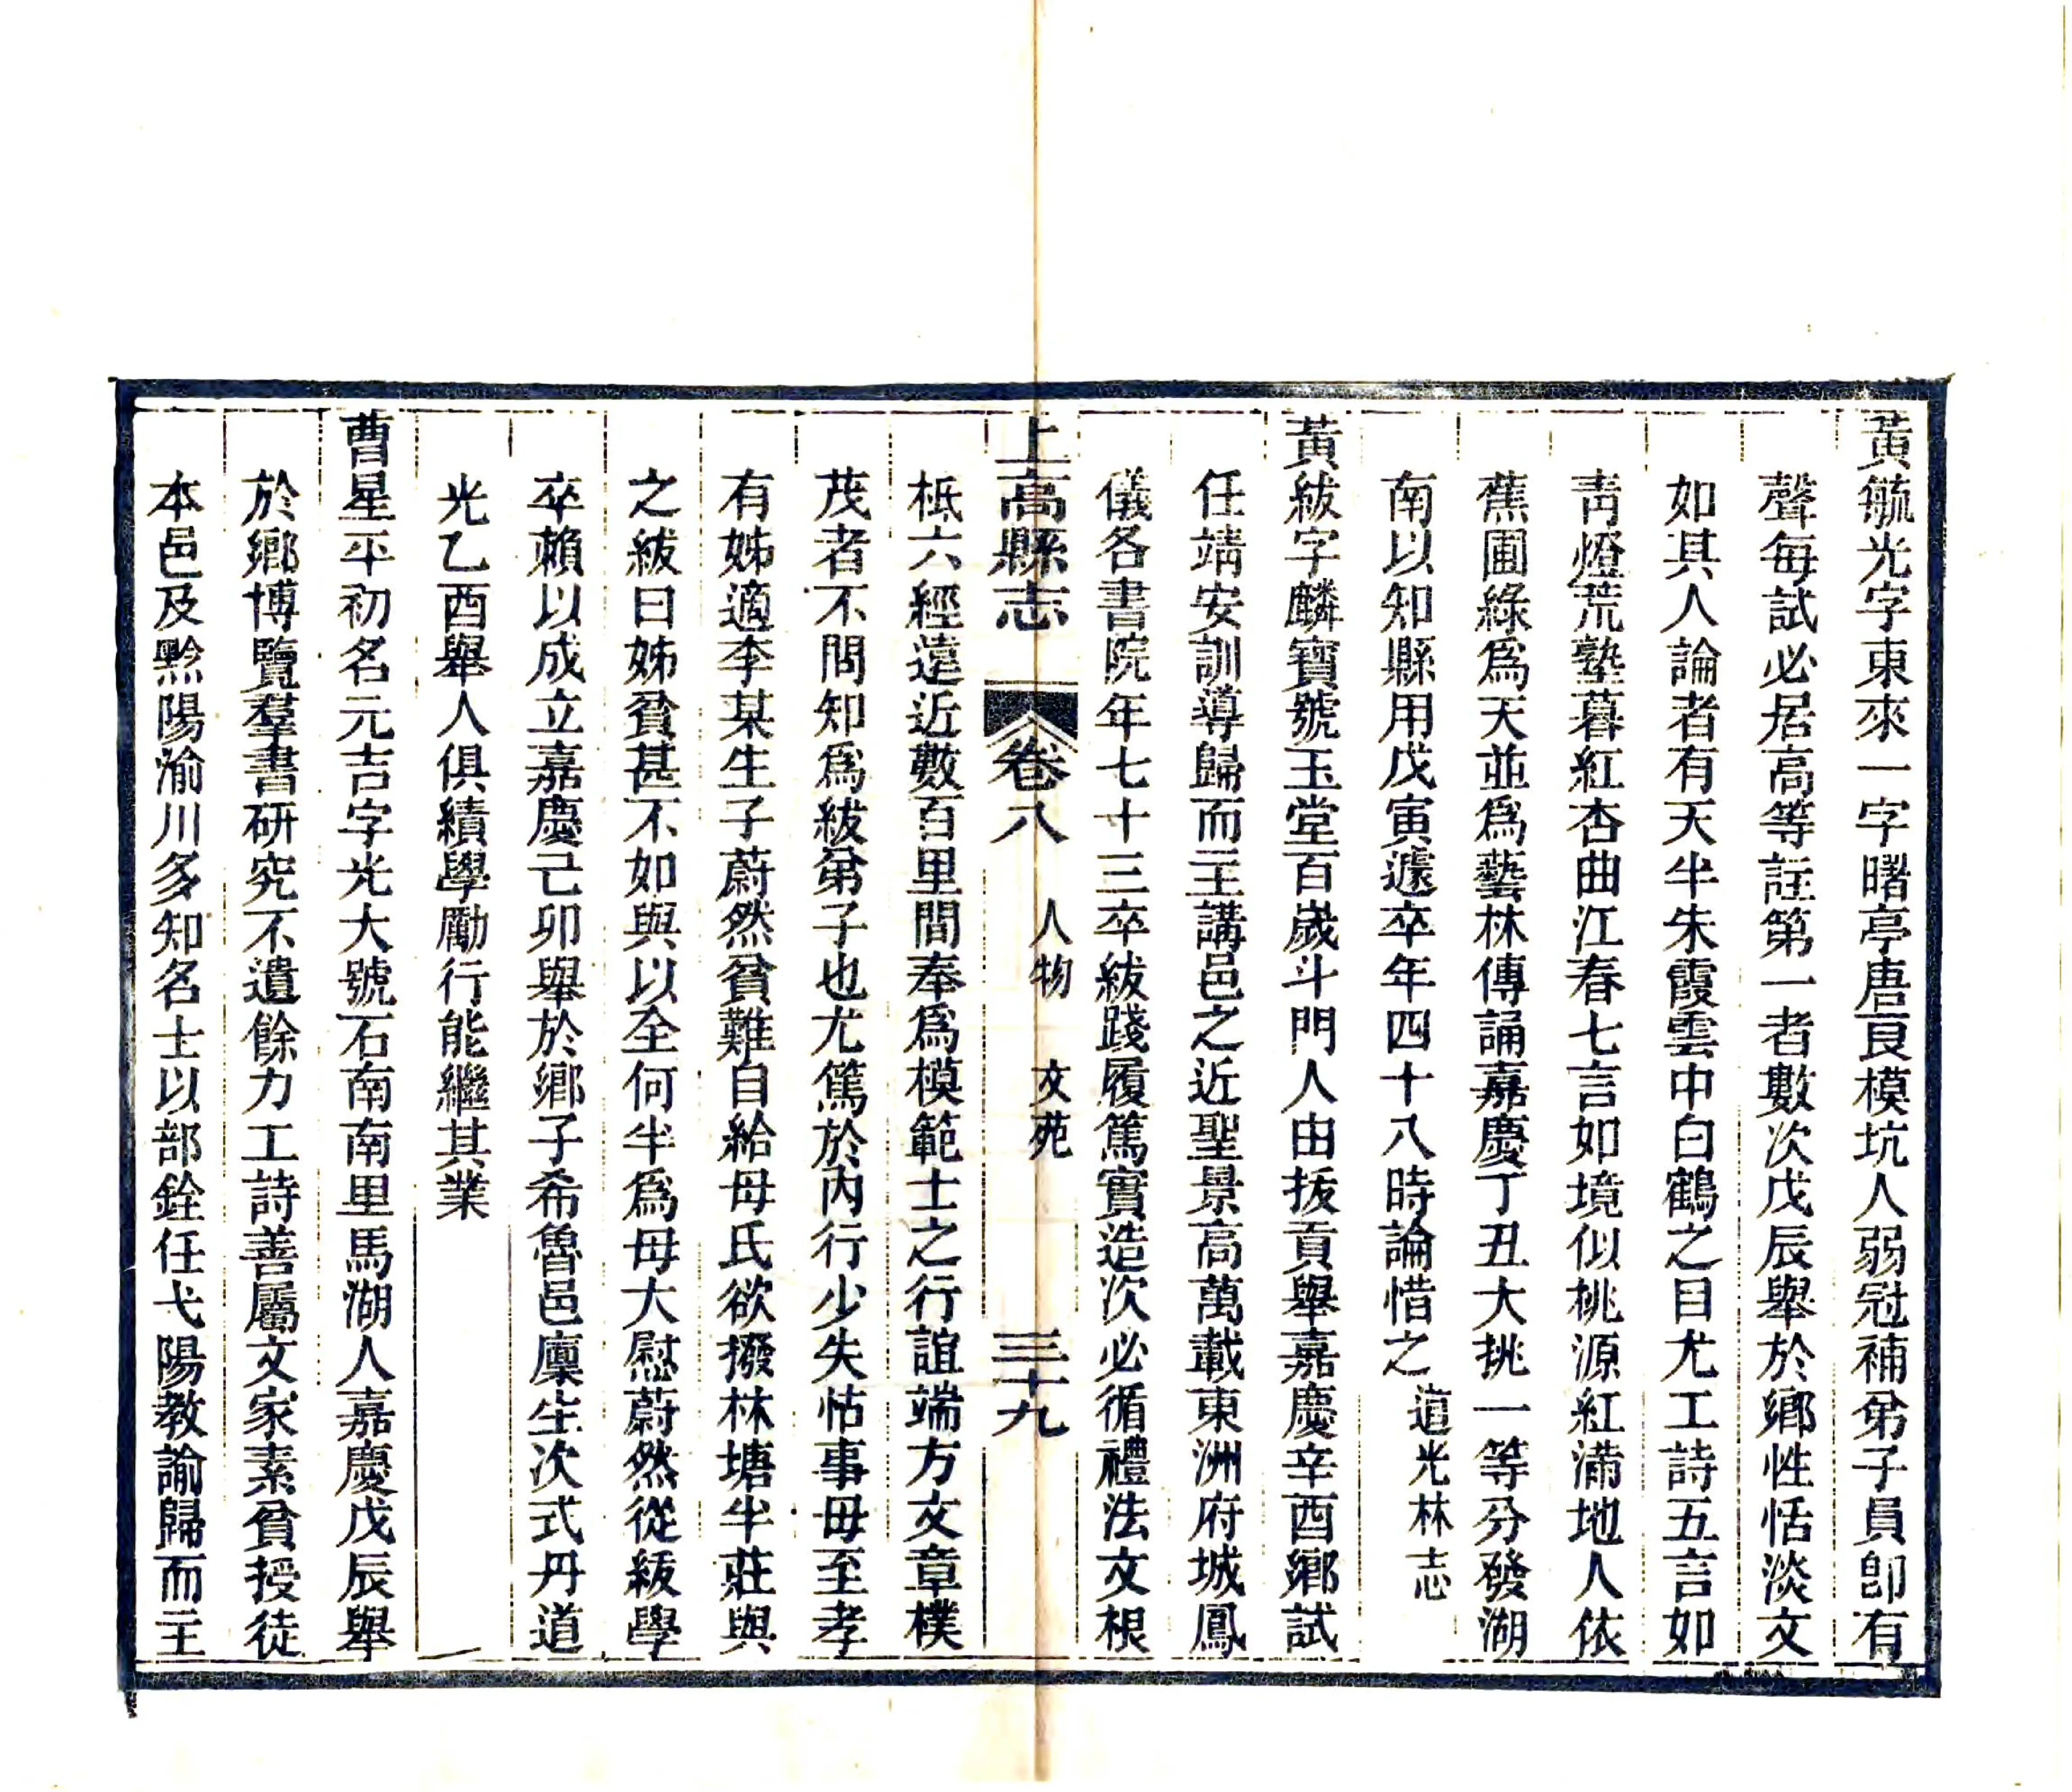 黃毓光字東來一字曙亭唐良模坑人弱冠補弟子員卽有
聲每試必居高等註第一者數次戊辰舉於鄉性恬淡文
如其人論者有天半朱霞雲中白鶴之目尤工詩五言如
靑燈荒塾暮紅杏曲江春七言如境似桃源紅滿地人依
蕉圃綠爲天並爲藝林傳誦嘉慶丁丑大挑一等分發湖
南以知縣用戊寅遽卒年四十八時論惜之道光林志
黃紱字麟寶號玉堂百歲斗門人由拔貢舉嘉慶辛酉鄉試
任靖安訓導歸而主講邑之近聖景高萬載東洲府城鳳
儀各書院年七十三卒紱踐履篤實造次必循禮法文根
上高縣志 卷八 人物 文苑 三十九
柢六經遠近數百里間奉爲模範士之行誼端方文章樸
茂者不問知爲紱弟子也尤篤於內行少失怙事母至孝
有姊適李某生子蔚然貧難自給母氏欲撥林塘半莊與
之紱曰姊貧甚不如與以全何半爲母大慰蔚然從紱學
卒賴以成立嘉慶己卯舉於鄉子希魯邑廩生次式丹道
光乙酉舉人俱績學勵行能繼其業
曹星平初名元吉字光大號石南南里馬湖人嘉慶戊辰舉
於鄉博覽羣書硏究不遺餘力工詩善屬文家素貧授徒
本邑及黔陽渝川多知名士以部銓任弋陽教諭歸而主